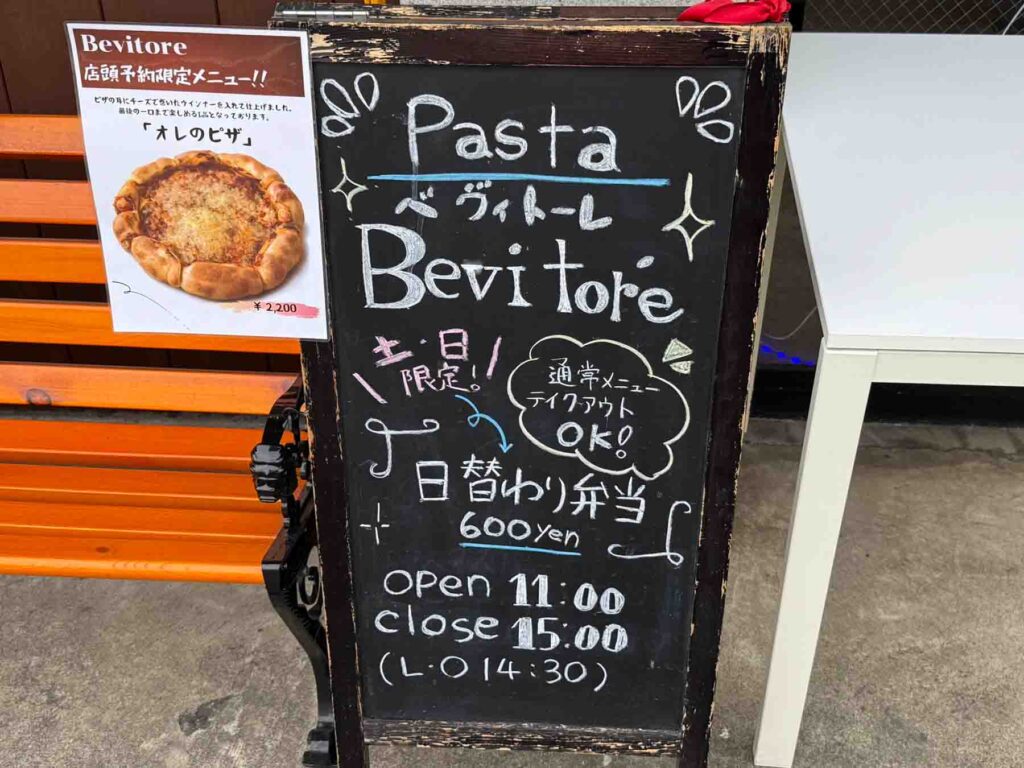 Bevitore
店頭予約限定メニュー!!
ピザの耳にチーズで巻いたウインナーを入れて仕上げました。
最後の一口まで楽しめる1品となっております。
「オレのピザ」
¥ 2,200
Pasta
ベヴィトーレ
Bevitoré
土・日
限定!
通常メニュー
テイクアウト
OK!
日替わり弁当
600yen
open 11:00
close 15:00
(L・O 14:30)